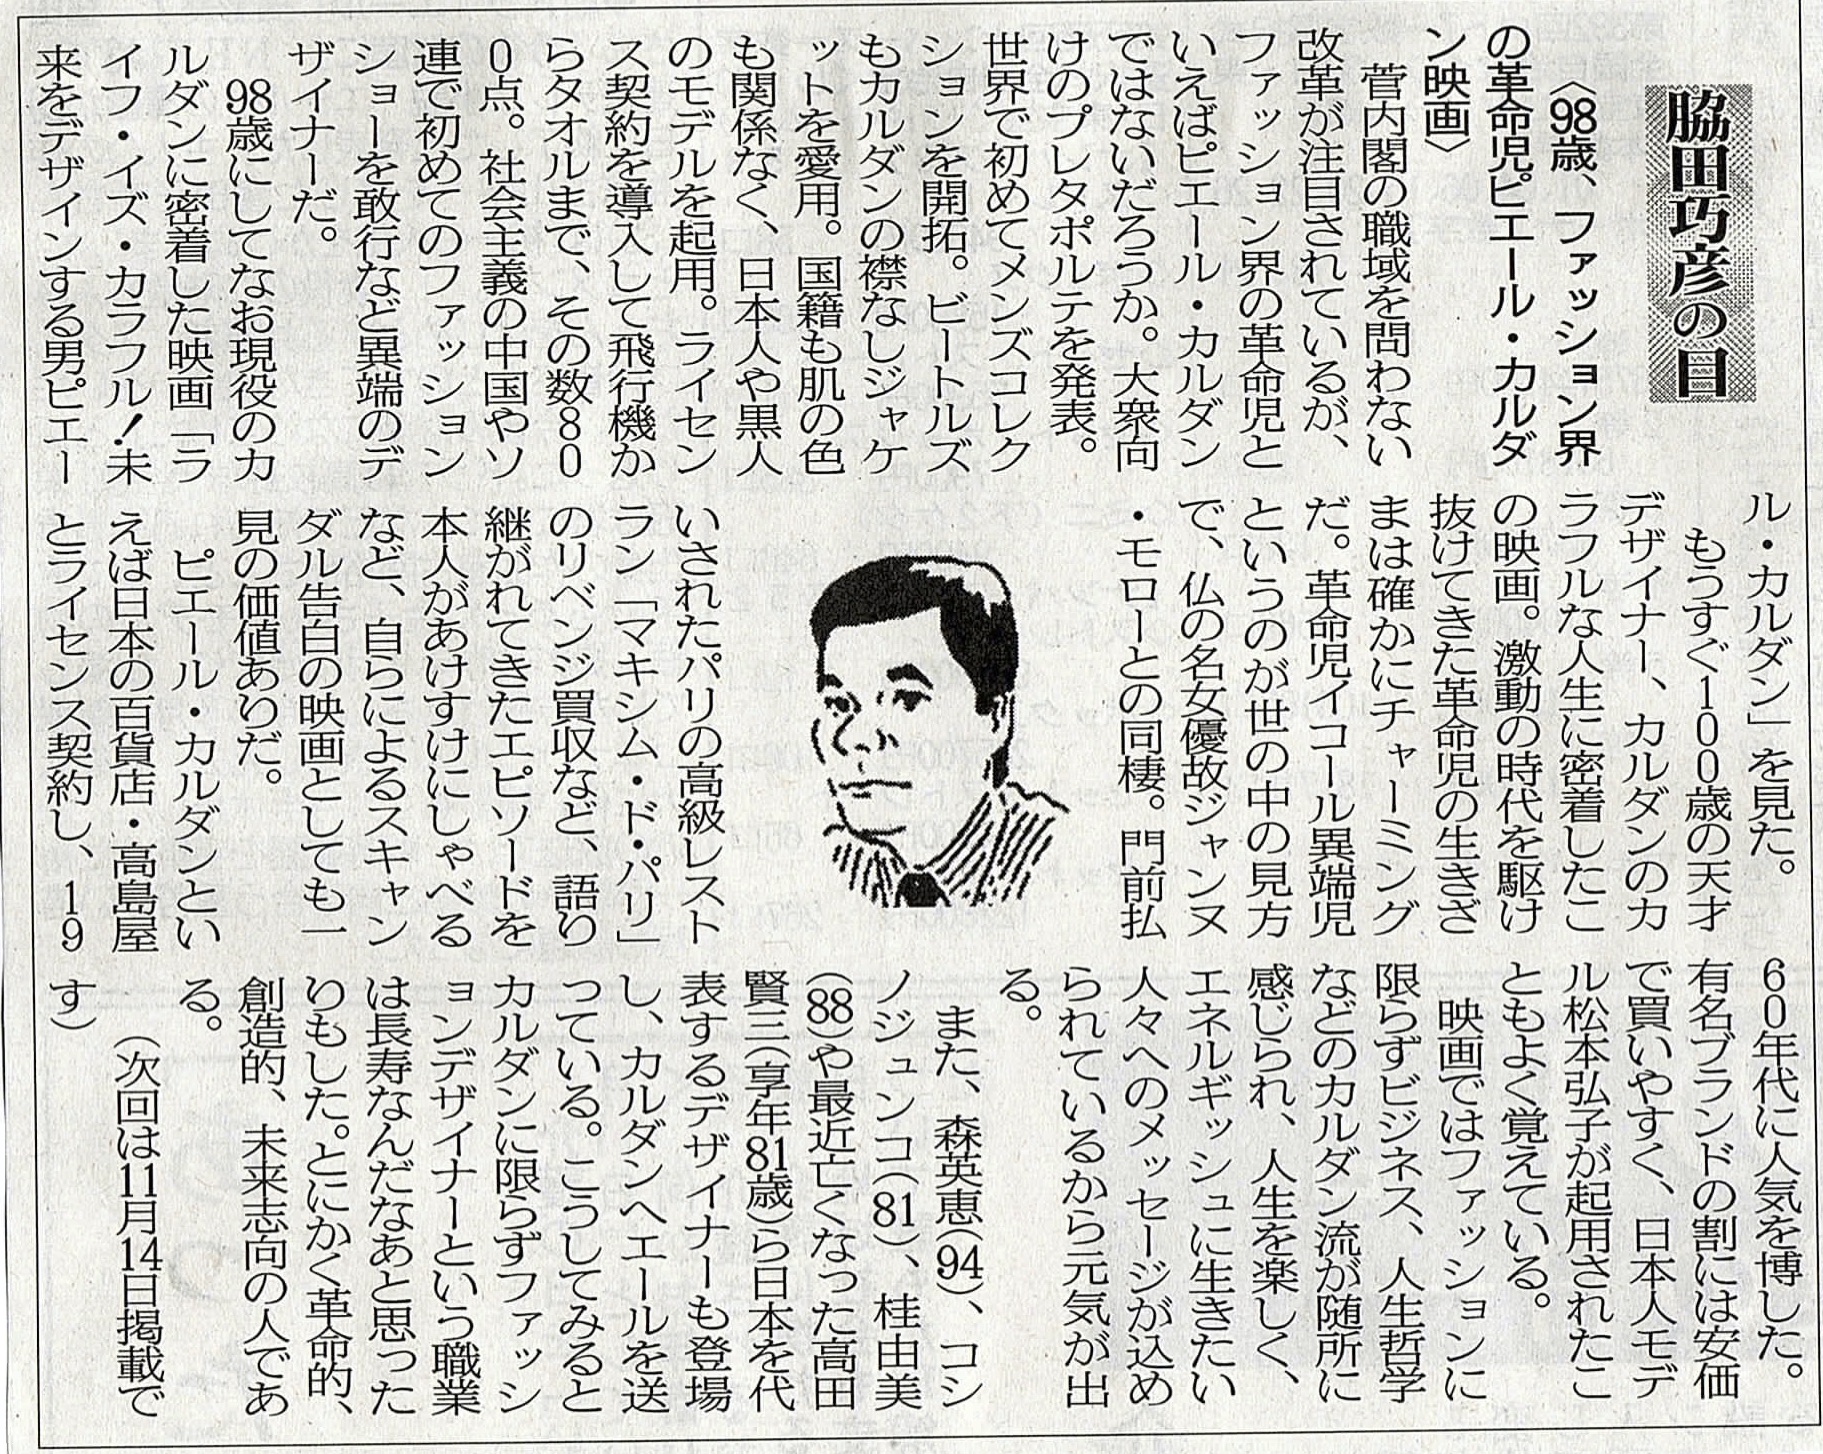 脇田巧彦の目
〈98歳、ファッション界
の革命児ピエール・カルダ
ン映画〉
菅内閣の職域を問わない
改革が注目されているが、
ファッション界の革命児と
いえばピエール・カルダン
ではないだろうか。大衆向
けのプレタポルテを発表。
世界で初めてメンズコレク
ションを開拓。ビートルズ
もカルダンの襟なしジャケ
ットを愛用。国籍も肌の色
も関係なく、日本人や黒人
のモデルを起用。ライセン
ス契約を導入して飛行機か
らタオルまで、その数80
0点。社会主義の中国やソ
連で初めてのファッション
ショーを敢行など異端のデ
ザイナーだ。
98歳にしてなお現役のカ
ルダンに密着した映画「ラ
イフ・イズ・カラフル!未
来をデザインする男ピエー
ル・カルダン」を見た。
もうすぐ100歳の天才
デザイナー、カルダンのカ
ラフルな人生に密着したこ
の映画。激動の時代を駆け
抜けてきた革命児の生きざ
まは確かにチャーミング
だ。革命児イコール異端児
というのが世の中の見方
で、仏の名女優故ジャンヌ
・モローとの同棲。門前払
いされたパリの高級レスト
ラン「マキシム・ド・パリ」
のリベンジ買収など、語り
継がれてきたエピソードを
本人があけすけにしゃべる
など、自らによるスキャン
ダル告白の映画としても一
見の価値ありだ。
ピエール・カルダンとい
えば日本の百貨店・高島屋
とライセンス契約し、19
60年代に人気を博した。
有名ブランドの割には安価
で買いやすく、日本人モデ
ル松本弘子が起用されたこ
ともよく覚えている。
映画ではファッションに
限らずビジネス、人生哲学
などのカルダン流が随所に
感じられ、人生を楽しく、
エネルギッシュに生きたい
人々へのメッセージが込め
られているから元気が出
る。
また、森英恵(94)、コシ
ノジュンコ(81)、桂由美
(88)や最近亡くなった高田
賢三(享年81歳)ら日本を代
表するデザイナーも登場
し、カルダンへエールを送
っている。こうしてみると
カルダンに限らずファッシ
ョンデザイナーという職業
は長寿なんだなあと思った
りもした。とにかく革命的、
創造的、未来志向の人であ
る。
(次回は11月14日掲載で
す)